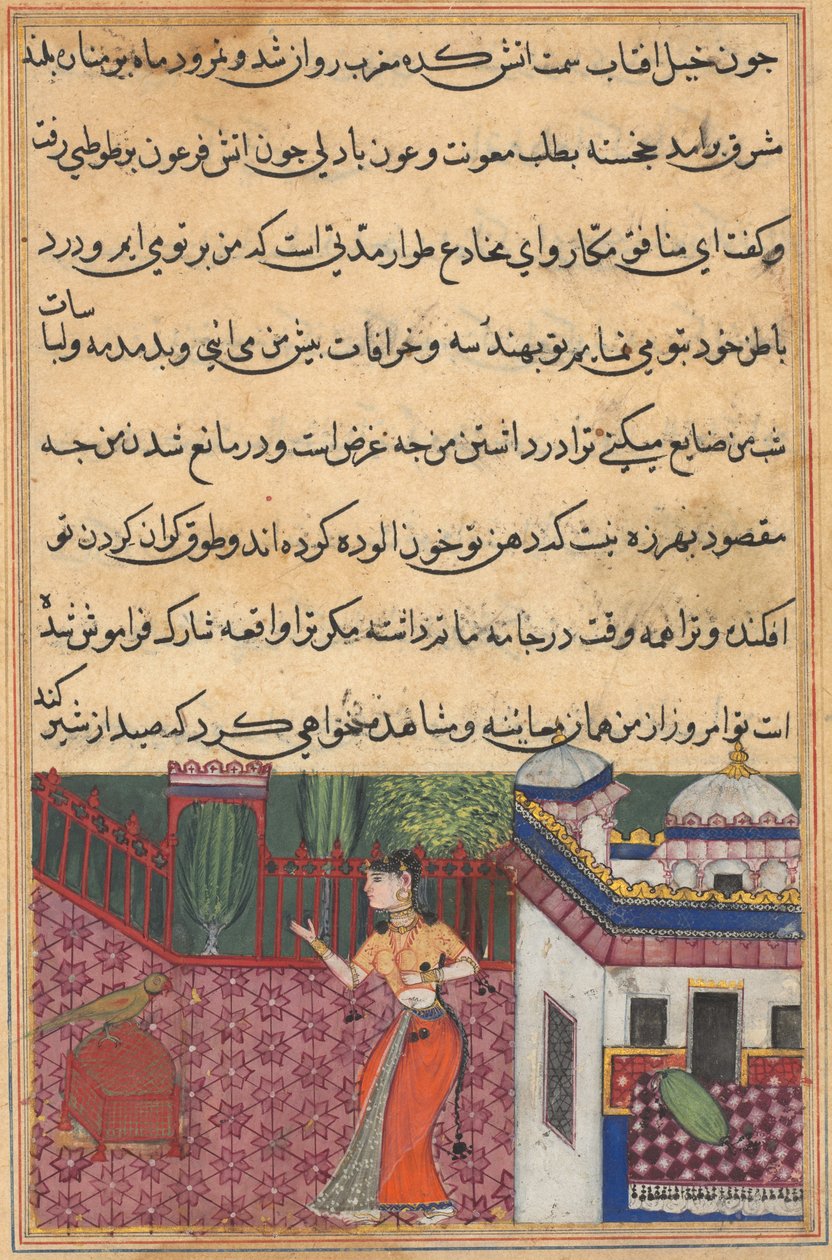 جون خیل افتاب سمت اتش کده مغرب روان شد و نمرود ماه بر مناره بلند
مشرق برامد خجسته بطلب معونت و عون بادلی جون اتش فرعون بر طوطی رفت
و کفت ای منافق مکار و ای مخادع طرار مدتی است که من بر تو می ایم و درد
باطن خود بتو می نمایم تو بهندسه و خرافات پیش من می ائی و بدمدمه ولباسات
شب من ضایع میکنی ترا درد داشتن من جه غرض است و در مانع شدن من جه
مقصود بهرزه نیت که دهن تو خون الوده کرده اند و طوق کران کردن تو
افکنده و ترا همه وقت در جامه ماتم داشته مکر ترا واقعه شارک فراموش شده
است تو امروز از من همان معاینه و مشاهده خواهی کرد که صید از شیر کند